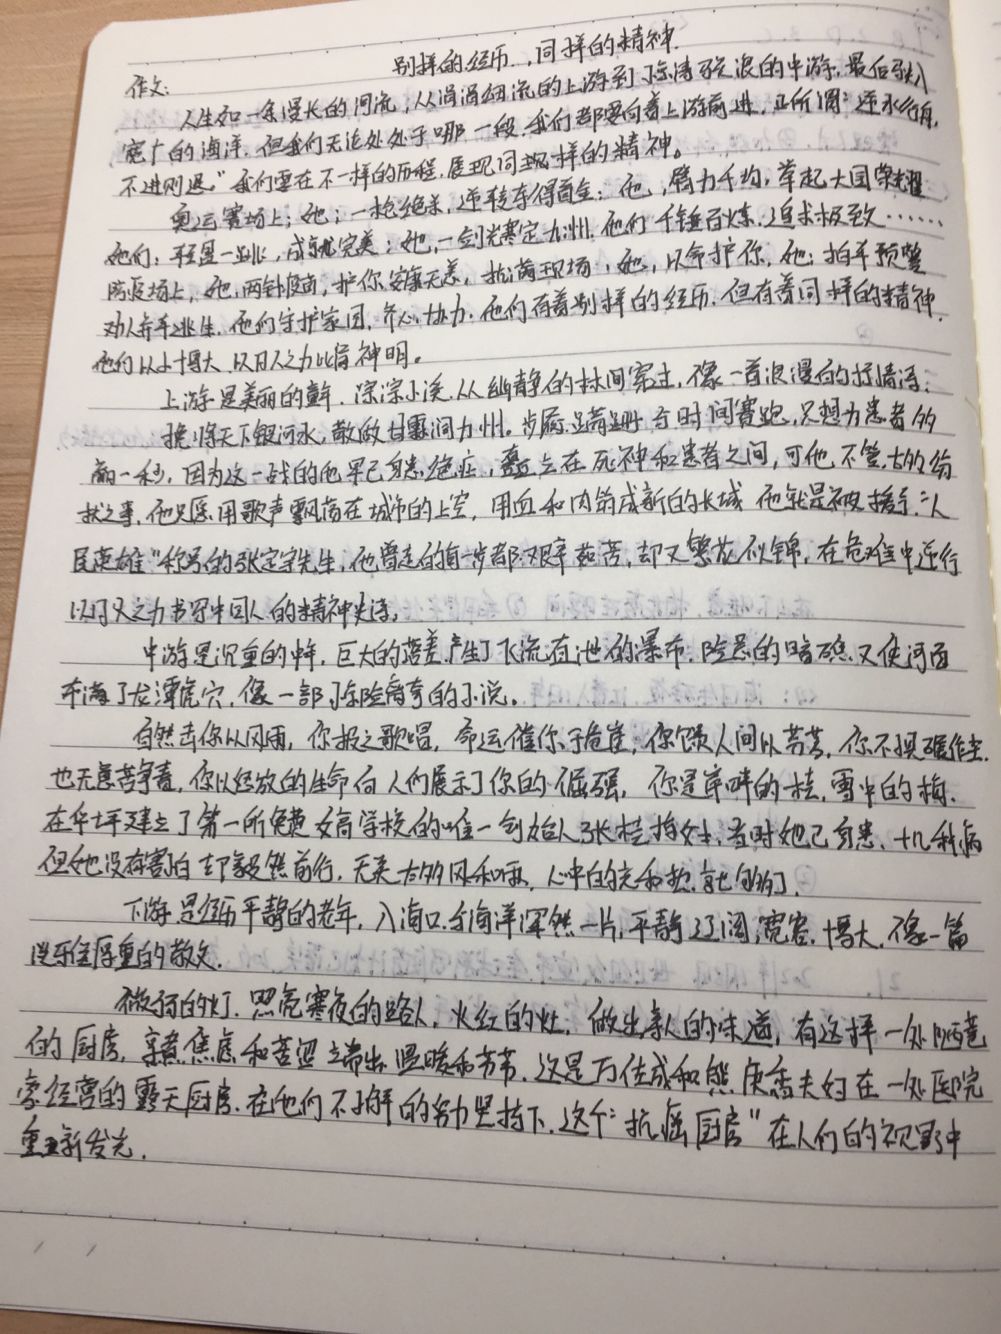 别样的经历,同样的精神
作文:
人生如一条漫长的河流,从涓涓细流的上游到惊涛骇浪的中游,最后融入
宽广的海洋。但我们无论处处于哪一段,我们都要向着上游前进,正所谓:逆水行舟,
不进则退。"我们要在不一样的历程,展现同样的精神。
奥运赛场上;她,一枪绝杀,逆转夺得首金;他,腾力千均,举起大国荣耀
她们,轻盈一跳,成就完美;她,一剑光寒定九州。他们千锤百炼,追求极致……
防疫场上,她,两针疫苗,护你安康无恙,抗洪现场,她,以命护你,他,拍车预警
劝人弃车逃生。他们守护家国,齐心协力。他们有着别样的经历,但有着同样的精神,
他们以小博大,以凡人之力比肩神明。
上游是美丽的童年,淙淙小溪,从幽静的林间穿过,像一首浪漫的抒情诗;
挽将天下银河水,散做甘霖润九州。步履蹒跚,与时间赛跑,只想为患者多
翻一秒,因为这一战的他早已身患绝症,矗立在死神和患者之间,可他不管太多纷
扰之事,他只愿用歌声飘荡在城市的上空,用血和肉筑成新的长城 他就是被授予:"人
民英雄"称号的张定宇先生,他曾走的每一步都艰辛茹苦,却又繁花似锦,在危难中逆行
以凡人之力书写中国人的精神史诗。
中游是沉重的中年,巨大的落差产生了飞流直泄的瀑布,险恶的暗礁又使河面
布满了龙潭虎穴,像一部惊险离奇的小说。
自然击你以风雨,你报之歌唱,命运催你于危崖,你馈人间以芳芳,你不惧碾作尘,
也无意苦争春,你以怒放的生命向人们展示了你的倔强,你是崖畔的桂,雪中的梅,
在华坪建立了第一所免费女高学校的唯一创始人张桂梅女士,当时她已身患十几种病
但她没有害怕却毅然前行,无关太多风和雨,心中的光和热就足够了。
下游是经历平静的老年,入海口与海洋浑然一片,平静辽阔,宽容,博大,像一篇
隽永厚重的散文。
微弱的灯,照亮寒夜的路人,火红的灶,做出亲人的味道,有这样一处陋巷
的厨房,烹煮焦虑和苦涩 端出温暖和芳芳,这是万佐成和熊庚香夫妇在一处医院
旁经营的露天厨房,在他们不懈的努力坚持下,这个"抗癌厨房"在人们的视野中
重新发光。